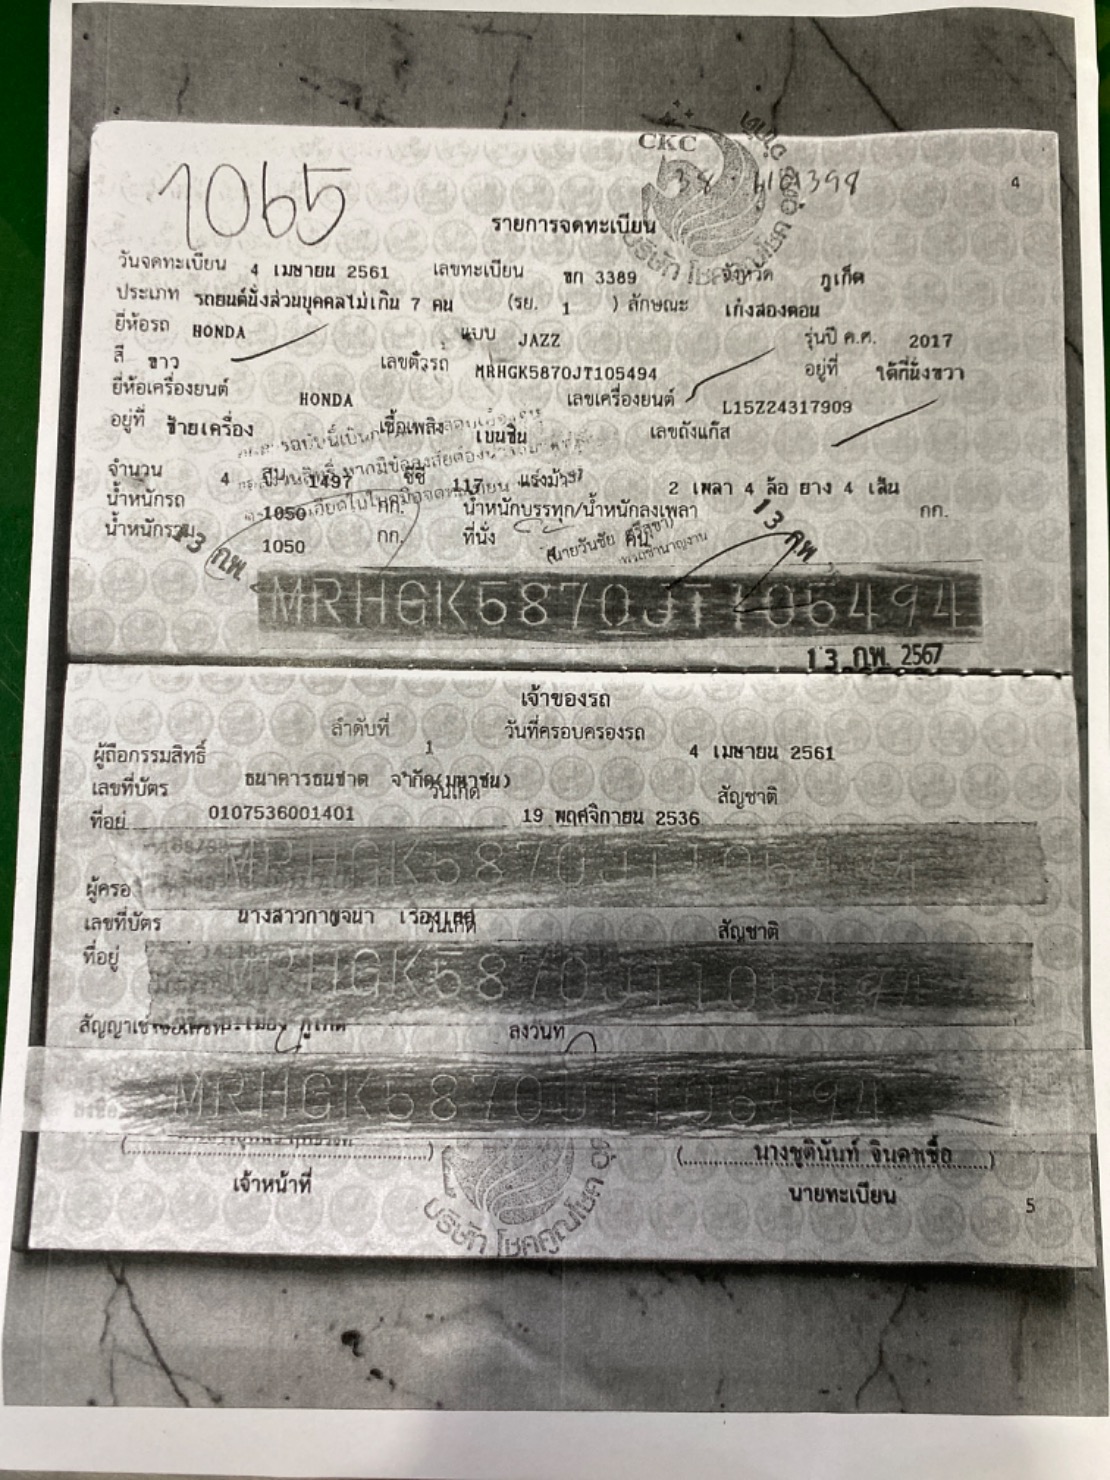 CKC
1065
4
รายการจดทะเบียน
วันจดทะเบียน 4 เมษายน 2561 เลขทะเบียน ขก 3389 จังหวัด ภูเก็ต
ประเภท รถยนต์นั่งส่วนบุคคลไม่เกิน 7 คน (รย. 1 ) ลักษณะ เก๋งสองตอน
ยี่ห้อรถ HONDA แบบ JAZZ รุ่นปี ค.ศ. 2017
สี ขาว เลขตัวรถ MRHGK5870JT105494 อยู่ที่ ใต้ที่นั่งขวา
ยี่ห้อเครื่องยนต์ HONDA เลขเครื่องยนต์ L15Z24317909
อยู่ที่ ซ้ายเครื่อง เชื้อเพลิง เบนซิน เลขถังแก๊ส
จำนวน 4 สูบ 1497 ซีซี 117 แรงม้า 2 เพลา 4 ล้อ ยาง 4 เส้น
น้ำหนักรถ 1050 กก. น้ำหนักบรรทุก/น้ำหนักลงเพลา กก.
น้ำหนักรวม 1050 กก. ที่นั่ง คน
13 กพ.
13 กพ
MRHGK5870JT105494
13 กพ. 2567
เจ้าของรถ
ลำดับที่ 1 วันที่ครอบครองรถ 4 เมษายน 2561
ผู้ถือกรรมสิทธิ์ ธนาคารธนชาต จำกัด(มหาชน)
เลขที่บัตร 0107536001401 วันเกิด 19 พฤศจิกายน 2536 สัญชาติ
ที่อยู่
MRHGK5870JT105494
ผู้ครอง นางสาวกาญจนา
เลขที่บัตร วันเกิด สัญชาติ
ที่อยู่
MRHGK5870JT105494
ภูเก็ต
สัญญาเช่าซื้อเลขที่ ลงวันที่
MRHGK5870JT105494
(นางชุตินันท์ จินดาเชื้อ)
เจ้าหน้าที่ นายทะเบียน
บริษัท โชคคูณโชค
5